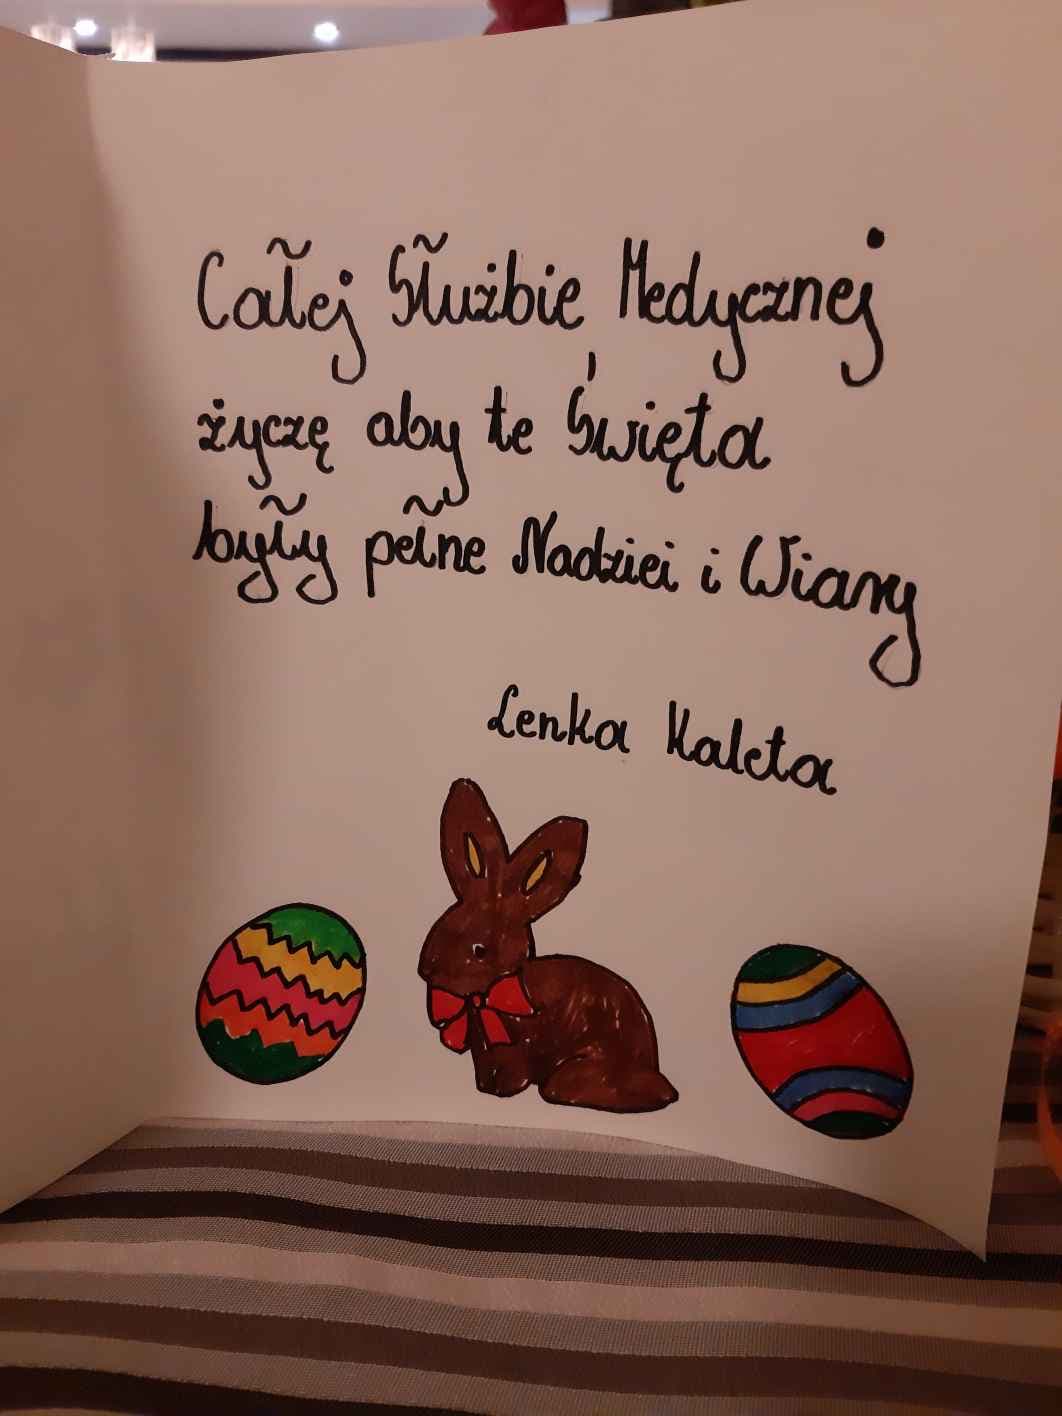 Całej Służbie Medycznej
życzę aby te Święta
były pełne Nadziei i Wiary
Lenka Kaleta